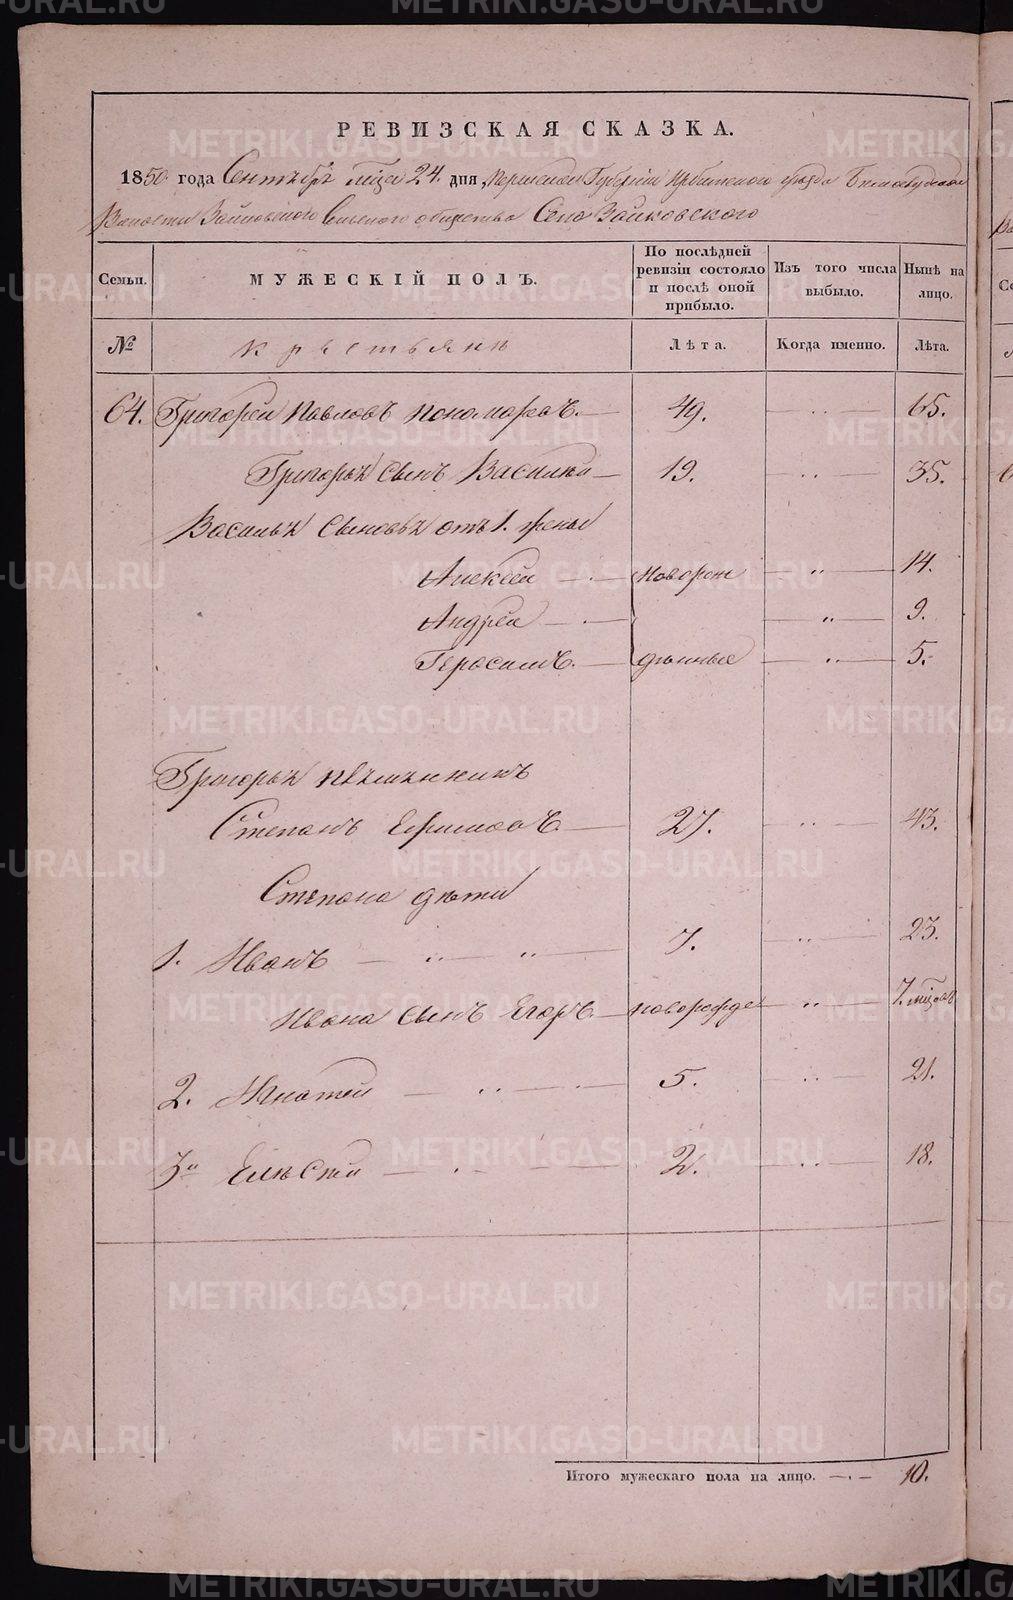 РЕВИЗСКАЯ СКАЗКА.
1850 года Сентября м-ца 24. дня, Пермской Губернии Ирбитского уѣзда Бѣлослудской
Волости Зайковского Сельского общества Села Зайковского
Семьи. МУЖЕСКІЙ ПОЛЪ. По послѣдней ревизіи состояло и послѣ оной прибыло. Изъ того числа выбыло. Нынѣ на лицо.
№ крестьяне Лѣта. Когда именно. Лѣта.
64. Григорей Павловъ Пономаревъ. 49. 65.
Григорья сынъ Василей 19. 35.
Василья сыновья отъ 1. жены
Алексей новорож 14.
Андрей 9.
Герасимъ. денные 5.
Григорья племянникъ
Степанъ Ефимовъ 27. 43.
Степана дѣти
1. Иванъ 7. 23.
Ивана сынъ Егоръ новорожде 7. м-цовъ
2. Игнатей 5. 21.
3й Елисей 2. 18.
Итого мужескаго пола на лицо. 10.
METRIKI.GASO-URAL.RU